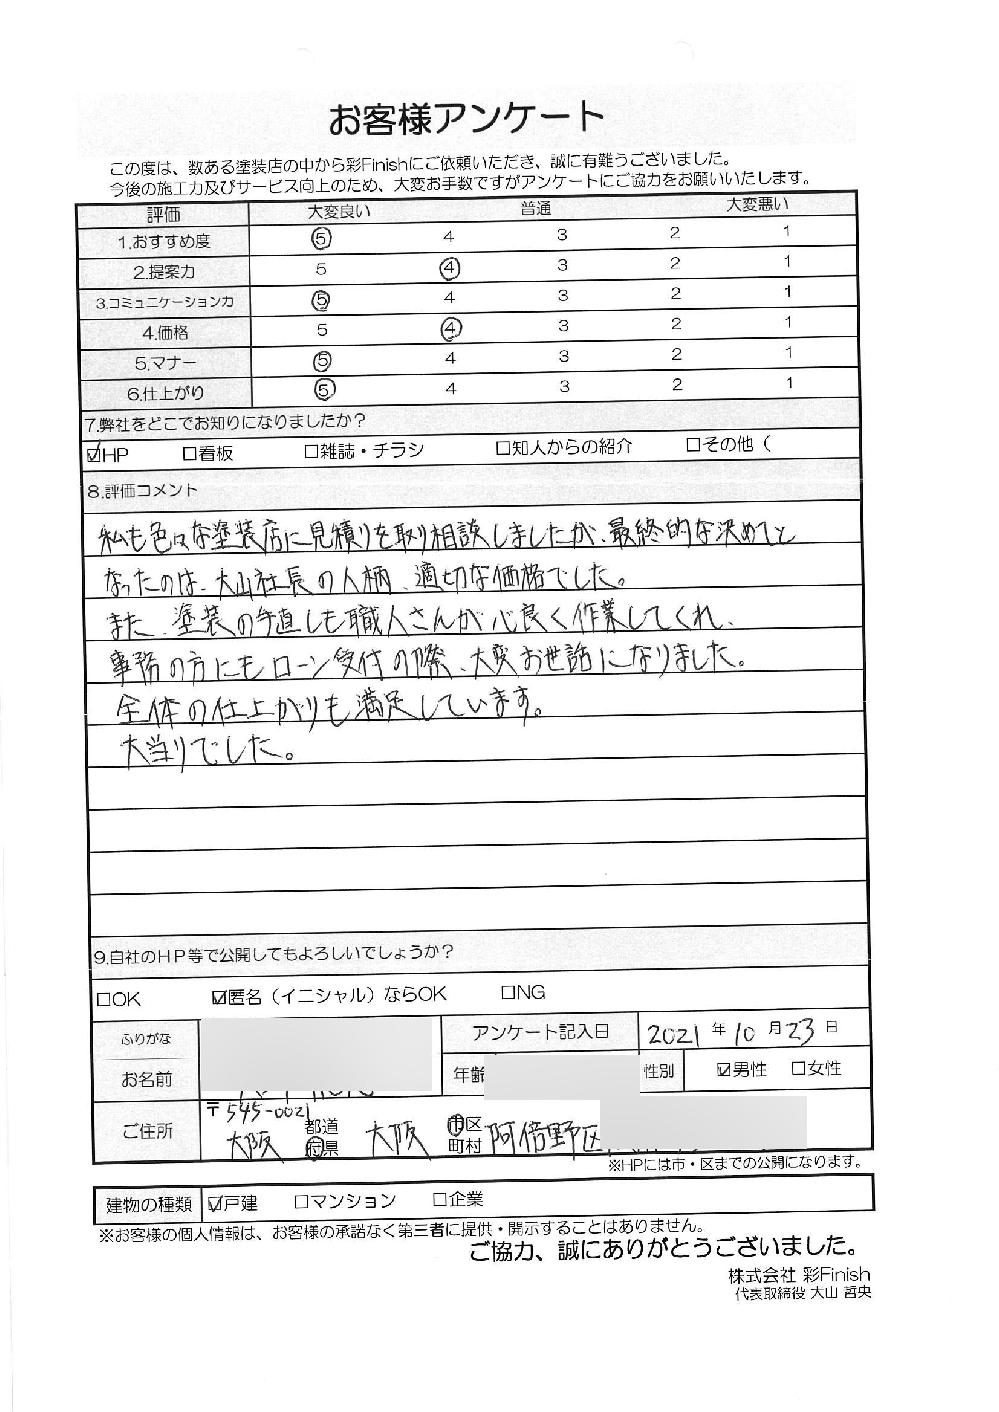 お客様アンケート
この度は、数ある塗装店の中から彩Finishにご依頼いただき、誠に有難うございました。
今後の施工力及びサービス向上のため、大変お手数ですがアンケートにご協力をお願いいたします。
評価 大変良い 普通 大変悪い
1.おすすめ度 5 4 3 2 1
2.提案力 5 4 3 2 1
3.コミュニケーション力 5 4 3 2 1
4.価格 5 4 3 2 1
5.マナー 5 4 3 2 1
6.仕上がり 5 4 3 2 1
7.弊社をどこでお知りになりましたか？
☑HP □看板 □雑誌・チラシ □知人からの紹介 □その他（
8.評価コメント
私も色々な塗装店に見積りを取り相談しましたが、最終的な決めてと
なったのは、大山社長の人柄、適切な価格でした。
また、塗装の手直しも職人さんが心良く作業してくれ、
事務の方にもローン受付の際、大変お世話になりました。
全体の仕上がりも満足しています。
大当りでした。
9.自社のHP等で公開してもよろしいでしょうか？
□OK ☑匿名（イニシャル）ならOK □NG
ふりがな アンケート記入日 2021年10月23日
お名前 年齢 性別 ☑男性 □女性
ご住所 〒545-0021
大阪 都道府県 大阪 市区町村 阿倍野区
※HPには市・区までの公開になります。
建物の種類 ☑戸建 □マンション □企業
※お客様の個人情報は、お客様の承諾なく第三者に提供・開示することはありません。
ご協力、誠にありがとうございました。
株式会社 彩Finish
代表取締役 大山 哲央